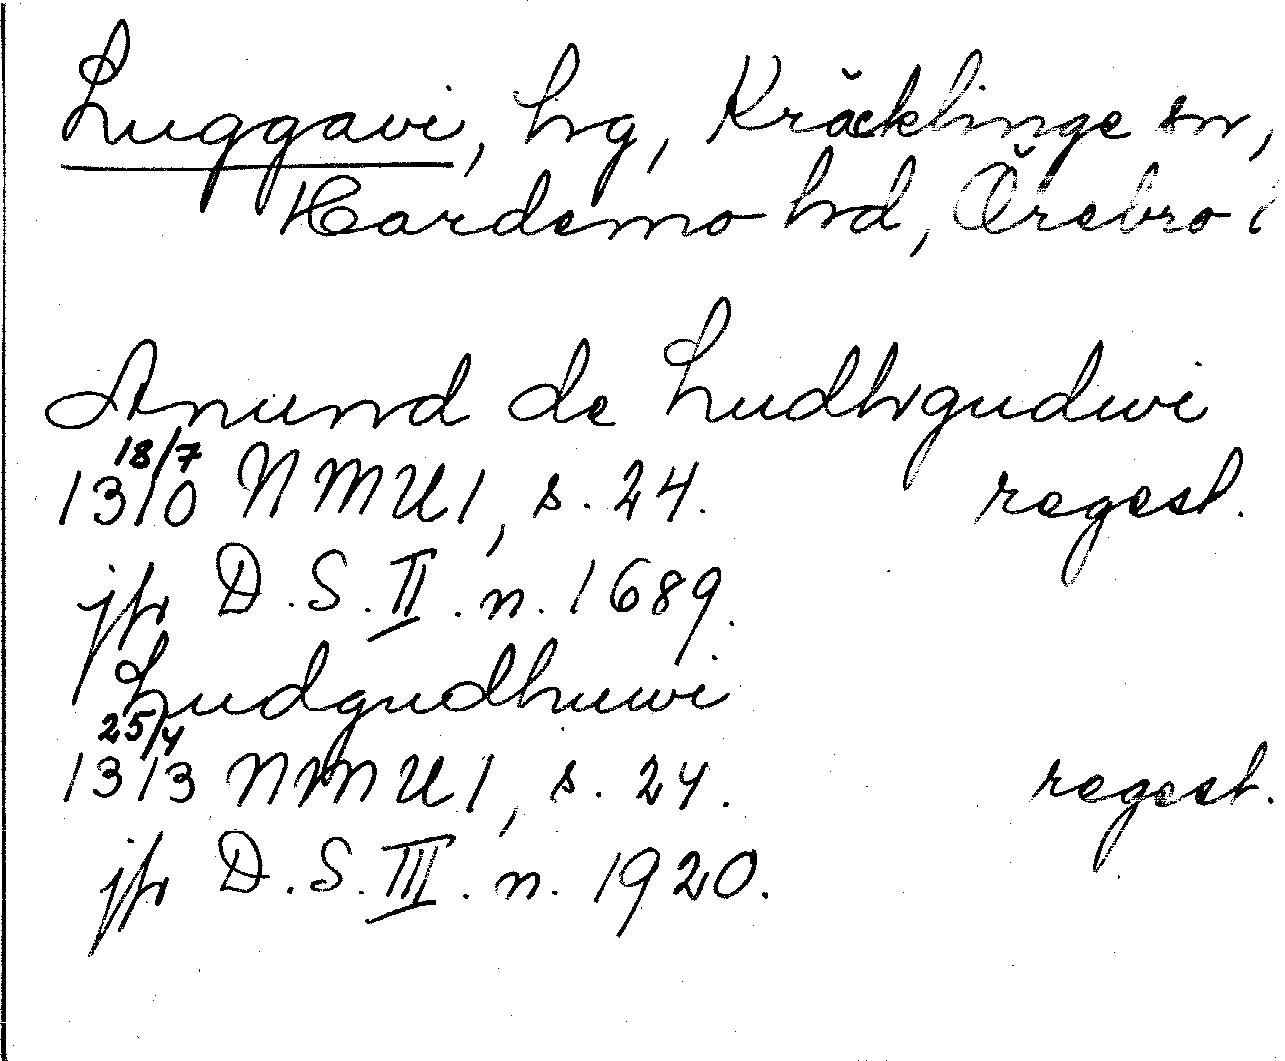 Luggavi, hg, Kräcklinge sn,
Hardemo hd, Örebro l
Anund de Ludhgudwi
18/7
1310 NMU1, s. 24. regest.
jfr D.S. II. n. 1689.
Ludgudhuwi
25/4
1313 NMU1, s. 24. regest.
jfr D.S. III. n. 1920.